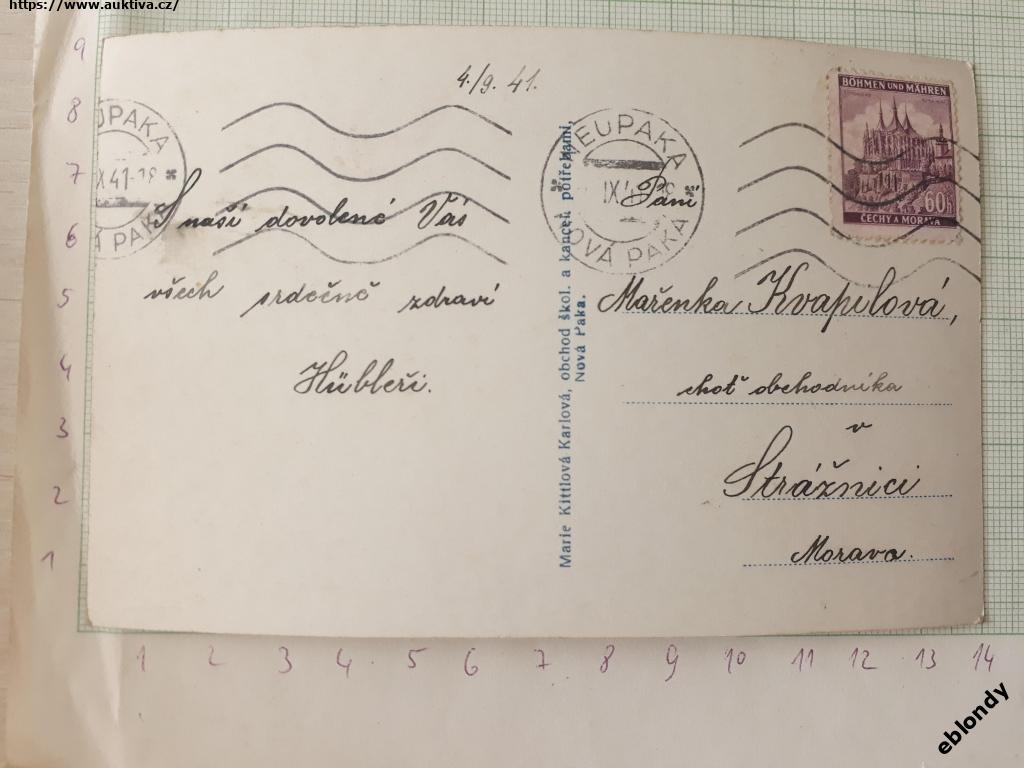 https://www.auktiva.cz/
4./9. 41.
UPAKA
IX 41-18
Á PAKA
NEUPAKA
IX 4 18
NOVÁ PAKA
BÖHMEN UND MÄHREN
60h
ČECHY A MORAVA
S naší dovolené Vás
všech srdečně zdraví
Hübleři.
Marie Kittlová Karlová, obchod škol. a kancel. potřebami,
Nová Paka.
Paní
Mařenka Kvapilová,
choť obchodníka
v
Strážnici
Morava.
9
8
7
6
5
4
3
2
1
1 2 3 4 5 6 7 8 9 10 11 12 13 14
eblondy